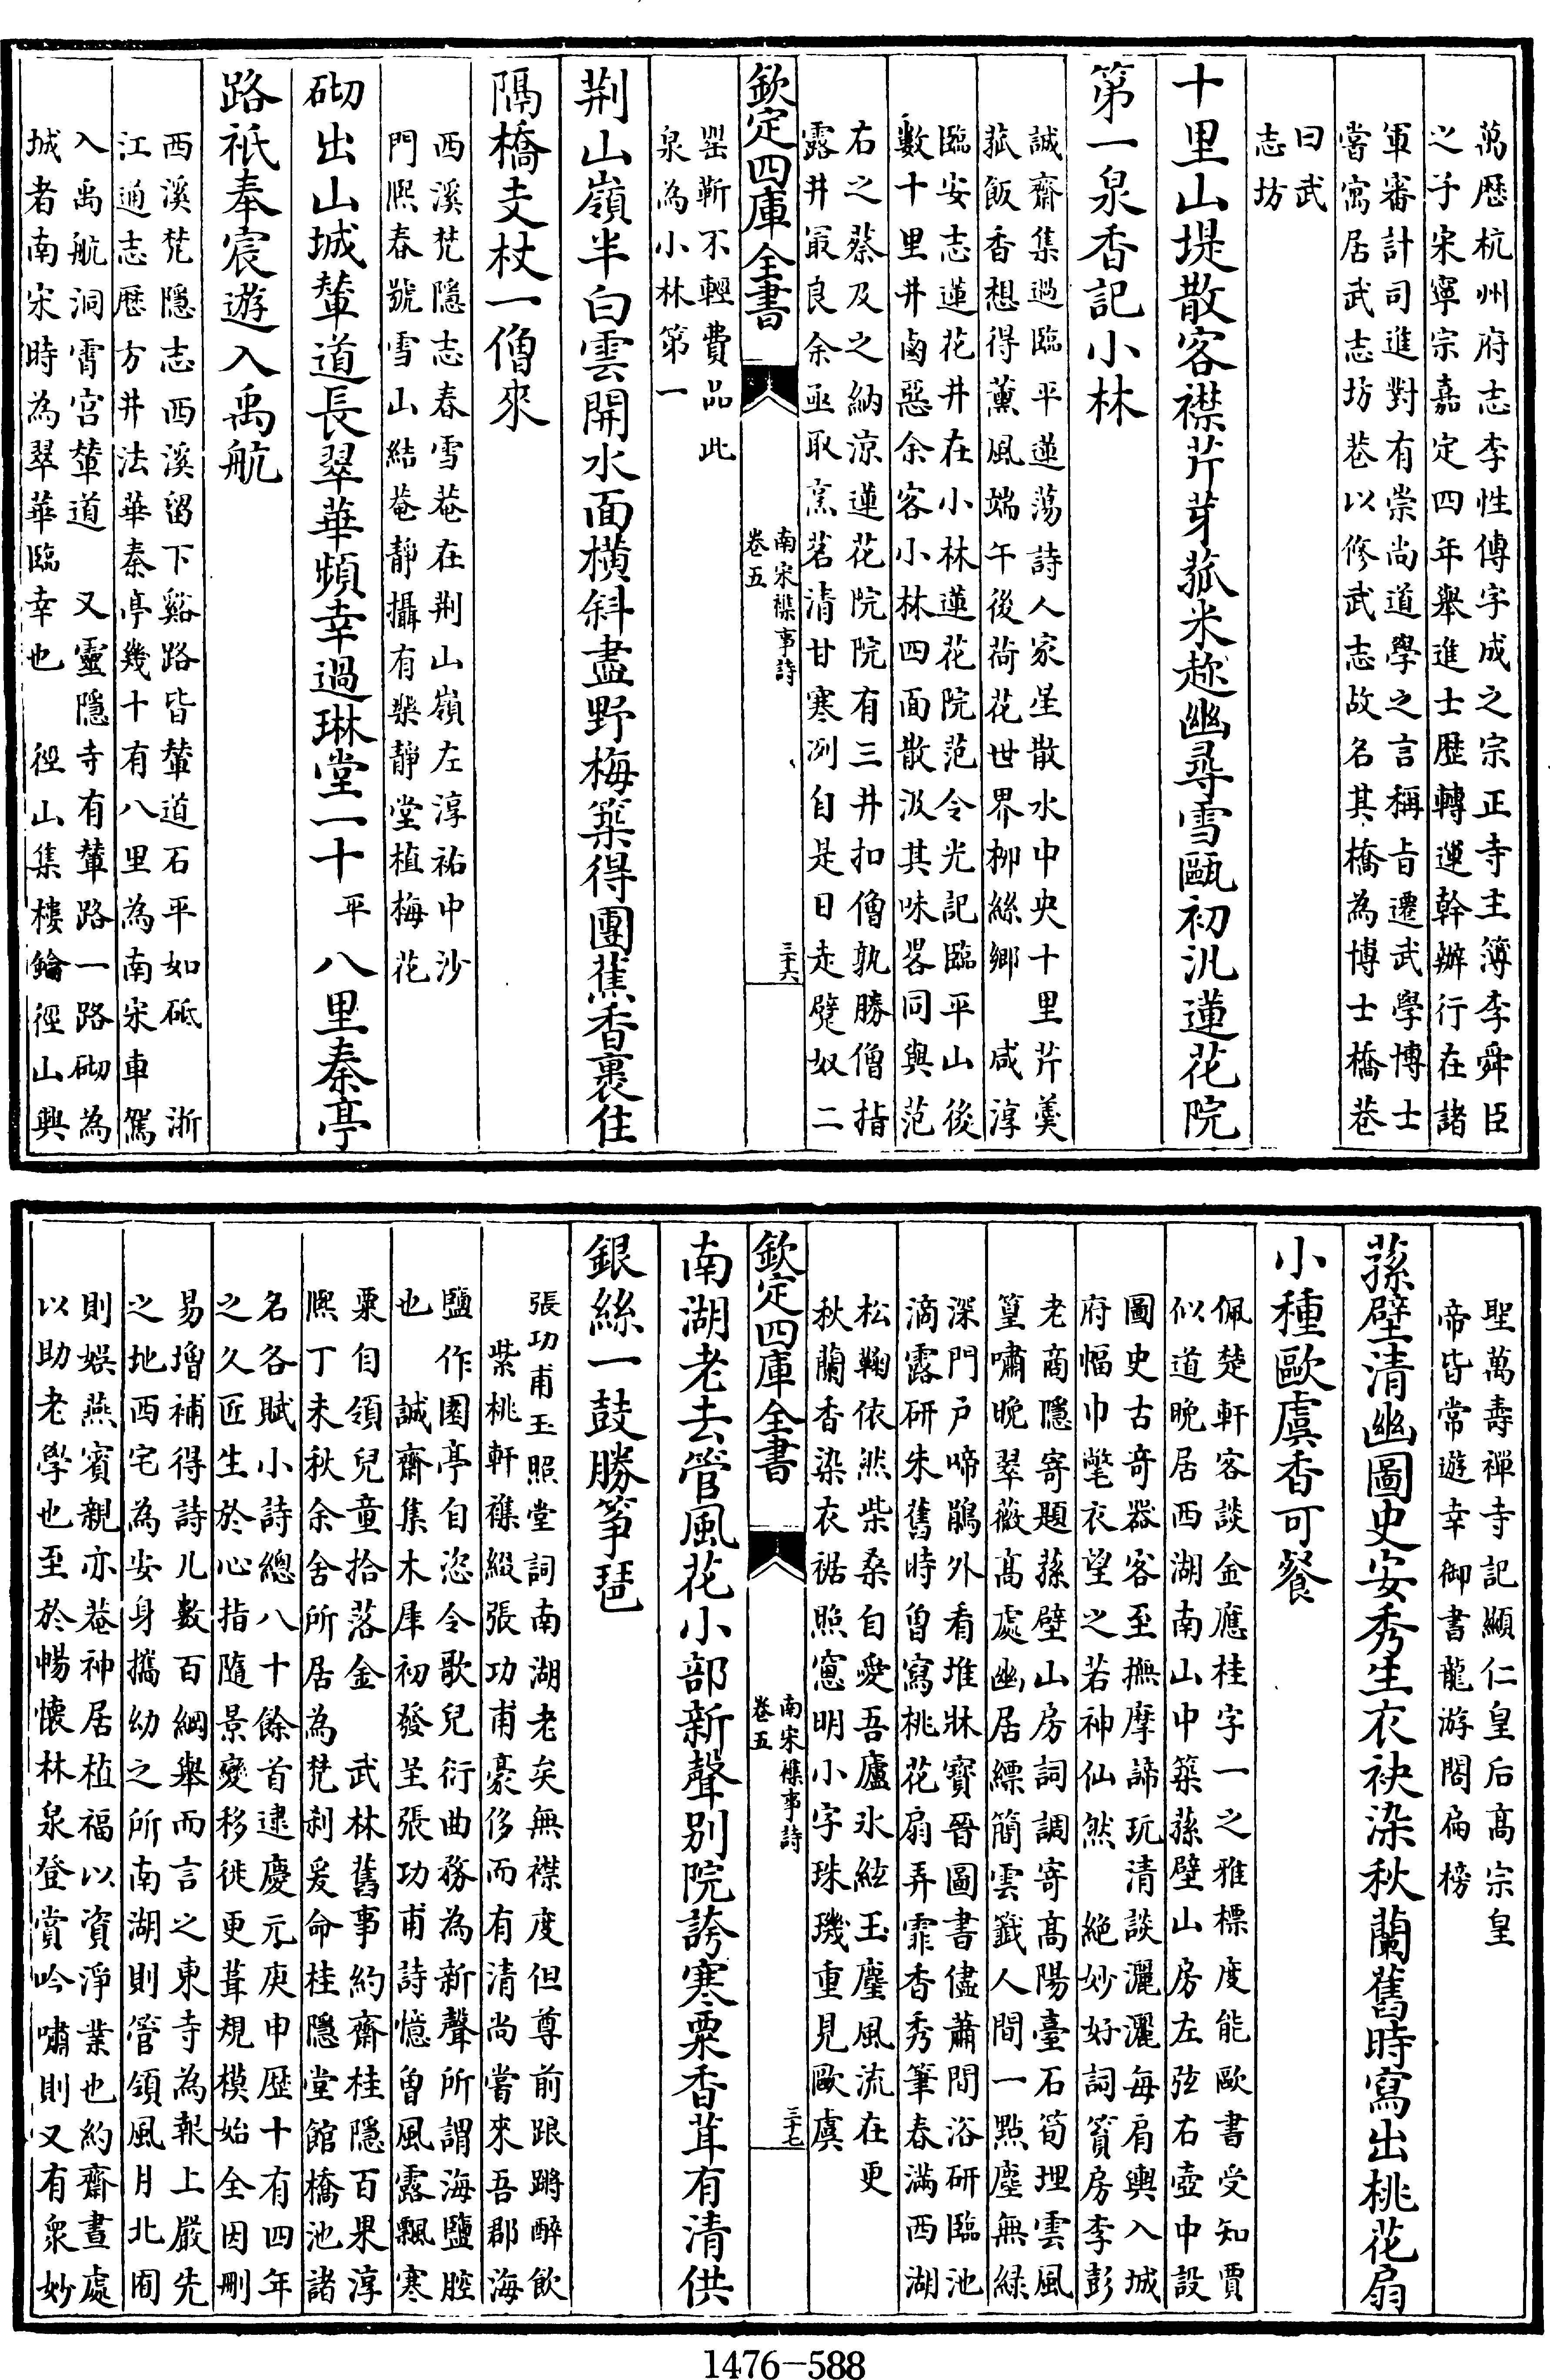 萬歷杭州府志李性傳字成之宗正寺主簿李舜臣
之子宋寧宗嘉定四年舉進士歷轉運幹辦行在諸
軍審計司進對有崇尚道學之言稱旨遷武學博士
嘗寓居武志坊巷以修武志故名其橋為博士橋巷
曰武
志坊
十里山堤散客襟芹芽菰米趁幽尋雪甌初汎蓮花院
第一泉香記小林
誠齋集過臨平蓮蕩詩人家星散水中央十里芹羹
菰飯香想得薰風端午後荷花世界栁絲鄉　咸淳
臨安志蓮花井在小林蓮花院范令光記臨平山後
數十里井鹵惡余客小林四面散汲其味畧同與范
右之蔡及之納涼蓮花院院有三井扣僧孰勝僧指
露井最良余亟取烹茗清甘寒冽自是日走甓奴二
欽定四庫全書
南宋襍事詩
卷五
三十六
罌靳不輕費品此
泉為小林第一
荆山嶺半白雲開水面橫斜盡野梅築得團蕉香裏住
隔橋支杖一僧來
西溪梵隱志春雪菴在荆山嶺左淳祐中沙
門熈春號雪山結菴靜攝有樂靜堂植梅花
砌出山城輦道長翠華頻幸過琳堂一十平八里秦亭
路祇奉宸遊入禹航
西溪梵隱志西溪留下谿路皆輦道石平如砥　浙
江通志歷方井法華秦亭幾十有八里為南宋車駕
入禹航洞霄宫輦道　又靈隱寺有輦路一路砌為
城者南宋時為翠華臨幸也　徑山集樓鑰徑山興
聖萬壽禪寺記顯仁皇后高宗皇
帝皆常遊幸御書龍游閣扁榜
蓀壁清幽圖史安秀生衣袂染秋蘭舊時寫出桃花扇
小種歐虞香可餐
佩楚軒客談金應桂字一之雅標度能歐書受知賈
似道晚居西湖南山中築蓀壁山房左弦右壺中設
圖史古奇器客至撫摩諦玩清談灑灑每肩輿入城
府幅巾氅衣望之若神仙然　絶妙好詞篔房李彭
老商隱寄題蓀壁山房詞調寄高陽臺石筍埋雲風
篁嘯晚翠薇高處幽居縹簡雲籤人間一點塵無緑
深門戶啼鵑外看堆牀寶晉圖書儘蕭閒浴研臨池
滴露研朱舊時曾寫桃花扇弄霏香秀筆春滿西湖
松鞠依然柴桑自愛吾廬氷絃玉麈風流在更
秋蘭香染衣裾照窻明小字珠璣重見歐虞
欽定四庫全書
南宋襍事詩
卷五
三十七
南湖老去管風花小部新聲别院誇寒粟香茸有清供
銀絲一鼓勝箏琶
張功甫玉照堂詞南湖老矣無襟度但尊前踉蹡醉飲
紫桃軒襍綴張功甫豪侈而有清尚嘗來吾郡海
鹽作園亭自恣令歌兒衍曲務為新聲所謂海鹽腔
也　誠齋集木犀初發呈張功甫詩憶曾風露飄寒
粟自領兒童拾落金　武林舊事約齋桂隱百果淳
熈丁未秋余舍所居為梵刹爰命桂隱堂館橋池諸
名各賦小詩總八十餘首逮慶元庚申歷十有四年
之久匠生於心指隨景變移徙更葺規模始全因刪
易增補得詩凡數百綱舉而言之東寺為報上嚴先
之地西宅為安身攜幼之所南湖則管領風月北園
則娱燕賓親亦菴神居植福以資淨業也約齋晝處
以助老學也至於暢懷林泉登賞吟嘯則又有衆妙
1476-588